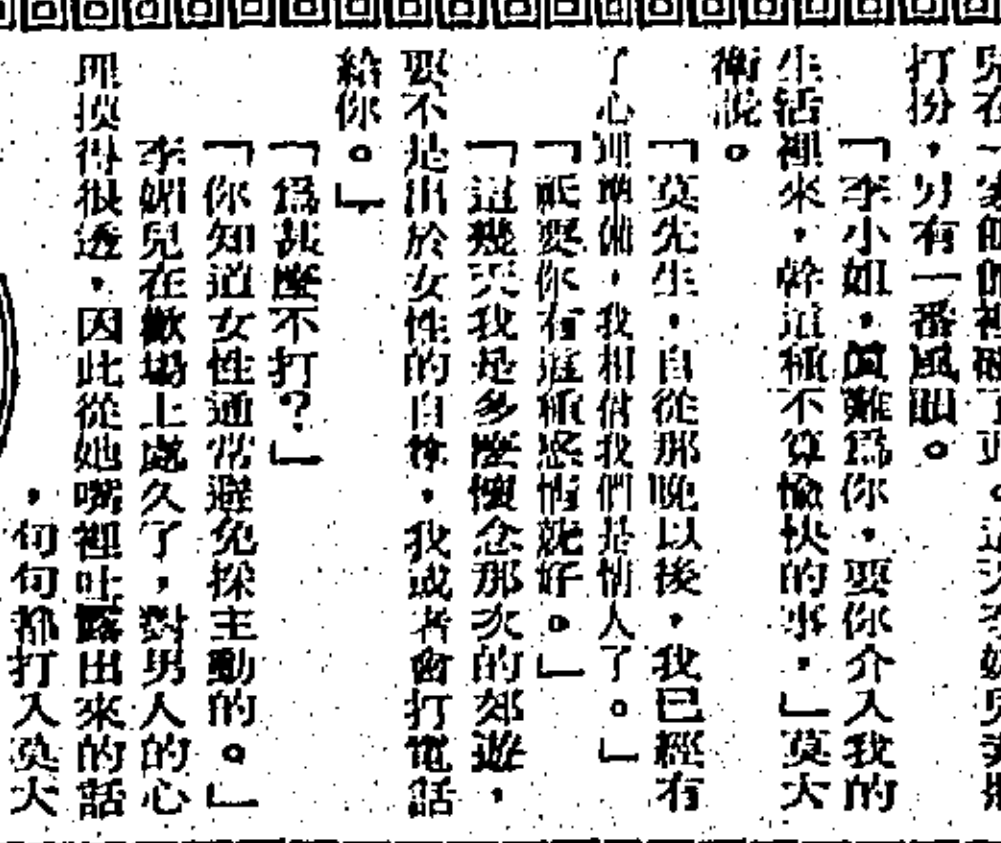 打扮，另有一番風韻。
「李小姐，眞難爲你，要你介入我的
生活裡來，幹這種不算愉快的事，」莫大
衛說。
「莫先生，自從那晚以後，我已經有
了心理準備，我相信我們是情人了。」
「祇要你有這種感情就好。」
「這幾天我是多麼懷念那次的郊遊，
要不是出於女性的自尊，我或者會打電話
給你。」
「爲甚麼不打？」
「你知道女性通常避免採主動的。」
李媚兒在歡場上處久了，對男人的心
理摸得很透，因此從她嘴裡吐露出來的話
，句句都打入莫大